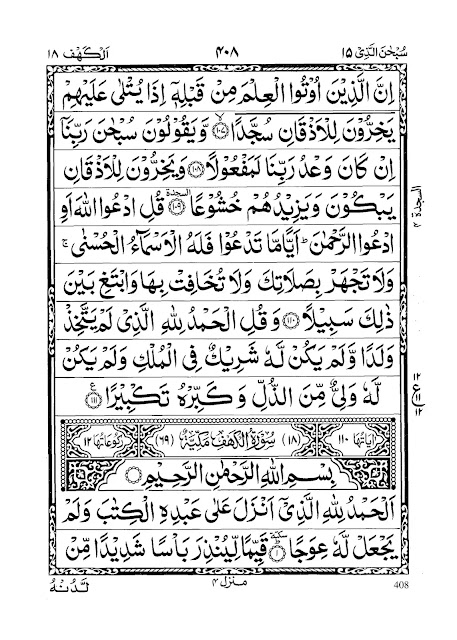 سُبْحٰنَ الَّذِیْۤ ۱۵ ۴۰۸ اَلْكَهْف ۱۸
اِنَّ الَّذِیْنَ اُوْتُوا الْعِلْمَ مِنْ قَبْلِهٖۤ اِذَا یُتْلٰى عَلَیْهِمْ
یَخِرُّوْنَ لِلْاَذْقَانِ سُجَّدًا ۱۰۷ وَّیَقُوْلُوْنَ سُبْحٰنَ رَبِّنَاۤ
اِنْ كَانَ وَعْدُ رَبِّنَا لَمَفْعُوْلًا ۱۰۸ وَیَخِرُّوْنَ لِلْاَذْقَانِ
یَبْكُوْنَ وَیَزِیْدُهُمْ خُشُوْعًا السجدة ۱۰۹ قُلِ ادْعُوا اللّٰهَ اَوِ
السجدة ۴
ادْعُوا الرَّحْمٰنَ ؕ اَیًّا مَّا تَدْعُوْا فَلَهُ الْاَسْمَآءُ الْحُسْنٰى ۚ
وَلَا تَجْهَرْ بِصَلَاتِكَ وَلَا تُخَافِتْ بِهَا وَابْتَغِ بَیْنَ
ذٰلِكَ سَبِیْلًا ۱۱۰ وَقُلِ الْحَمْدُ لِلّٰهِ الَّذِیْ لَمْ یَتَّخِذْ
وَلَدًا وَّلَمْ یَكُنْ لَّهٗ شَرِیْكٌ فِی الْمُلْكِ وَلَمْ یَكُنْ
لَّهٗ وَلِیٌّ مِّنَ الذُّلِّ وَكَبِّرْهُ تَكْبِیْرًا ۱۱۱ ع
۱۲
ع ۱۱
۱۲
اٰیاتها ۱۱۰ (۱۸) سُوْرَةُ الْكَهْفِ مَكِّیَّةٌ (۶۹) رکوعاتها ۱۲
بِسْمِ اللّٰهِ الرَّحْمٰنِ الرَّحِیْمِ
اَلْحَمْدُ لِلّٰهِ الَّذِیْۤ اَنْزَلَ عَلٰى عَبْدِهِ الْكِتٰبَ وَلَمْ
یَجْعَلْ لَّهٗ عِوَجًا سكتة ۱ قَیِّمًا لِّیُنْذِرَ بَاْسًا شَدِیْدًا مِّنْ
منزل ۴
لَّدُنْهُ
408